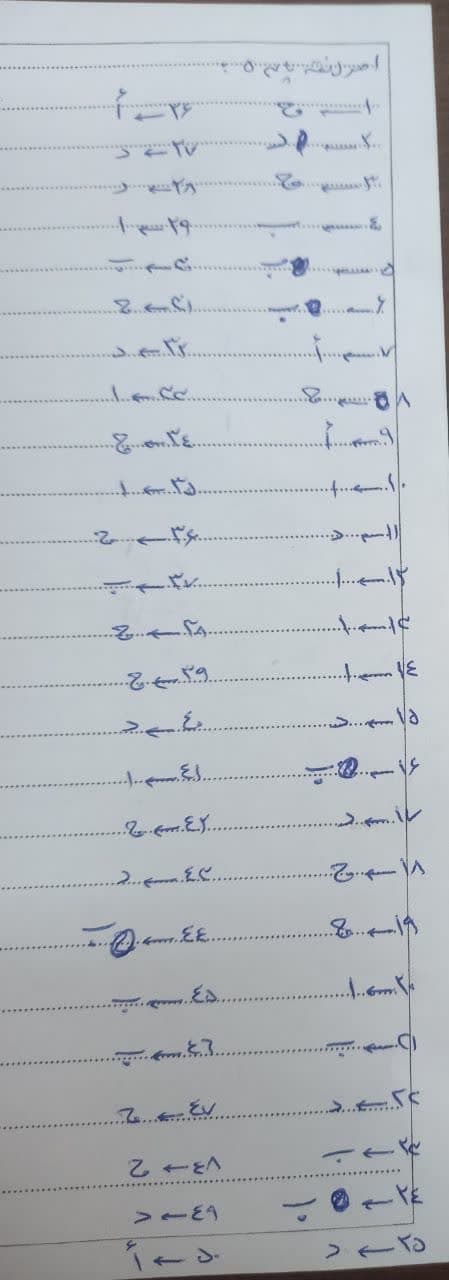 ١ ← ج ٢٦ ← أ
٢ ← د ٢٧ ← د
٣ ← ج ٢٨ ← د
٤ ← ب ٢٩ ← ا
٥ ← ب ٣٠ ← ب
٦ ← ب ٣١ ← ج
٧ ← أ ٣٢ ← د
٨ ← ج ٣٣ ← ا
٩ ← أ ٣٤ ← ج
١٠ ← ا ٣٥ ← ا
١١ ← د ٣٦ ← ج
١٢ ← ا ٣٧ ← ب
١٣ ← ا ٣٨ ← ج
١٤ ← ا ٣٩ ← ج
١٥ ← د ٤٠ ← د
١٦ ← ب ٤١ ← ا
١٧ ← د ٤٢ ← ج
١٨ ← ج ٤٣ ← د
١٩ ← ج ٤٤ ← ب
٢٠ ← ا ٤٥ ← ب
٢١ ← ب ٤٦ ← ب
٢٢ ← د ٤٧ ← ج
٢٣ ← ب ٤٨ ← ج
٢٤ ← ب ٤٩ ← د
٢٥ ← د ٥٠ ← أ